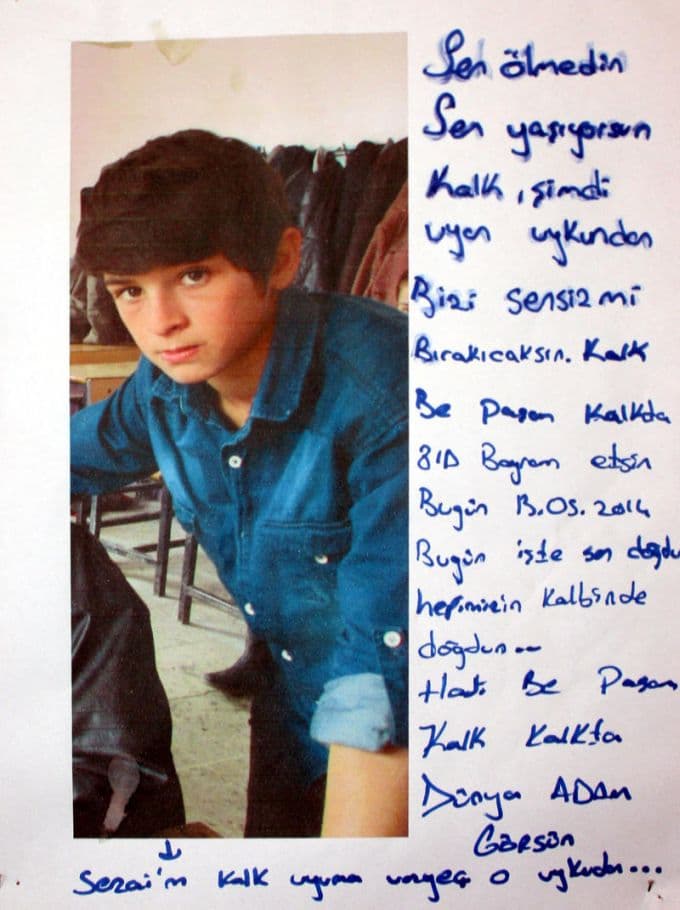 Sen ölmedin
Sen yaşıyorsun
Kalk, şimdi
uyan uykundan
Bizi sensizmi
Bırakıcaksın. Kalk
Be Paşam Kalkta
8/D Bayram etsin
Bugün 13.05.2014
Bugün işte sen doğdu
hepimizin Kalbinde
doğdun...
Hadi Be Paşam
Kalk Kalkta
Dünya ADAM
GÖRSÜN
Sezai'm Kalk uyuma vazgeç o uykudan...